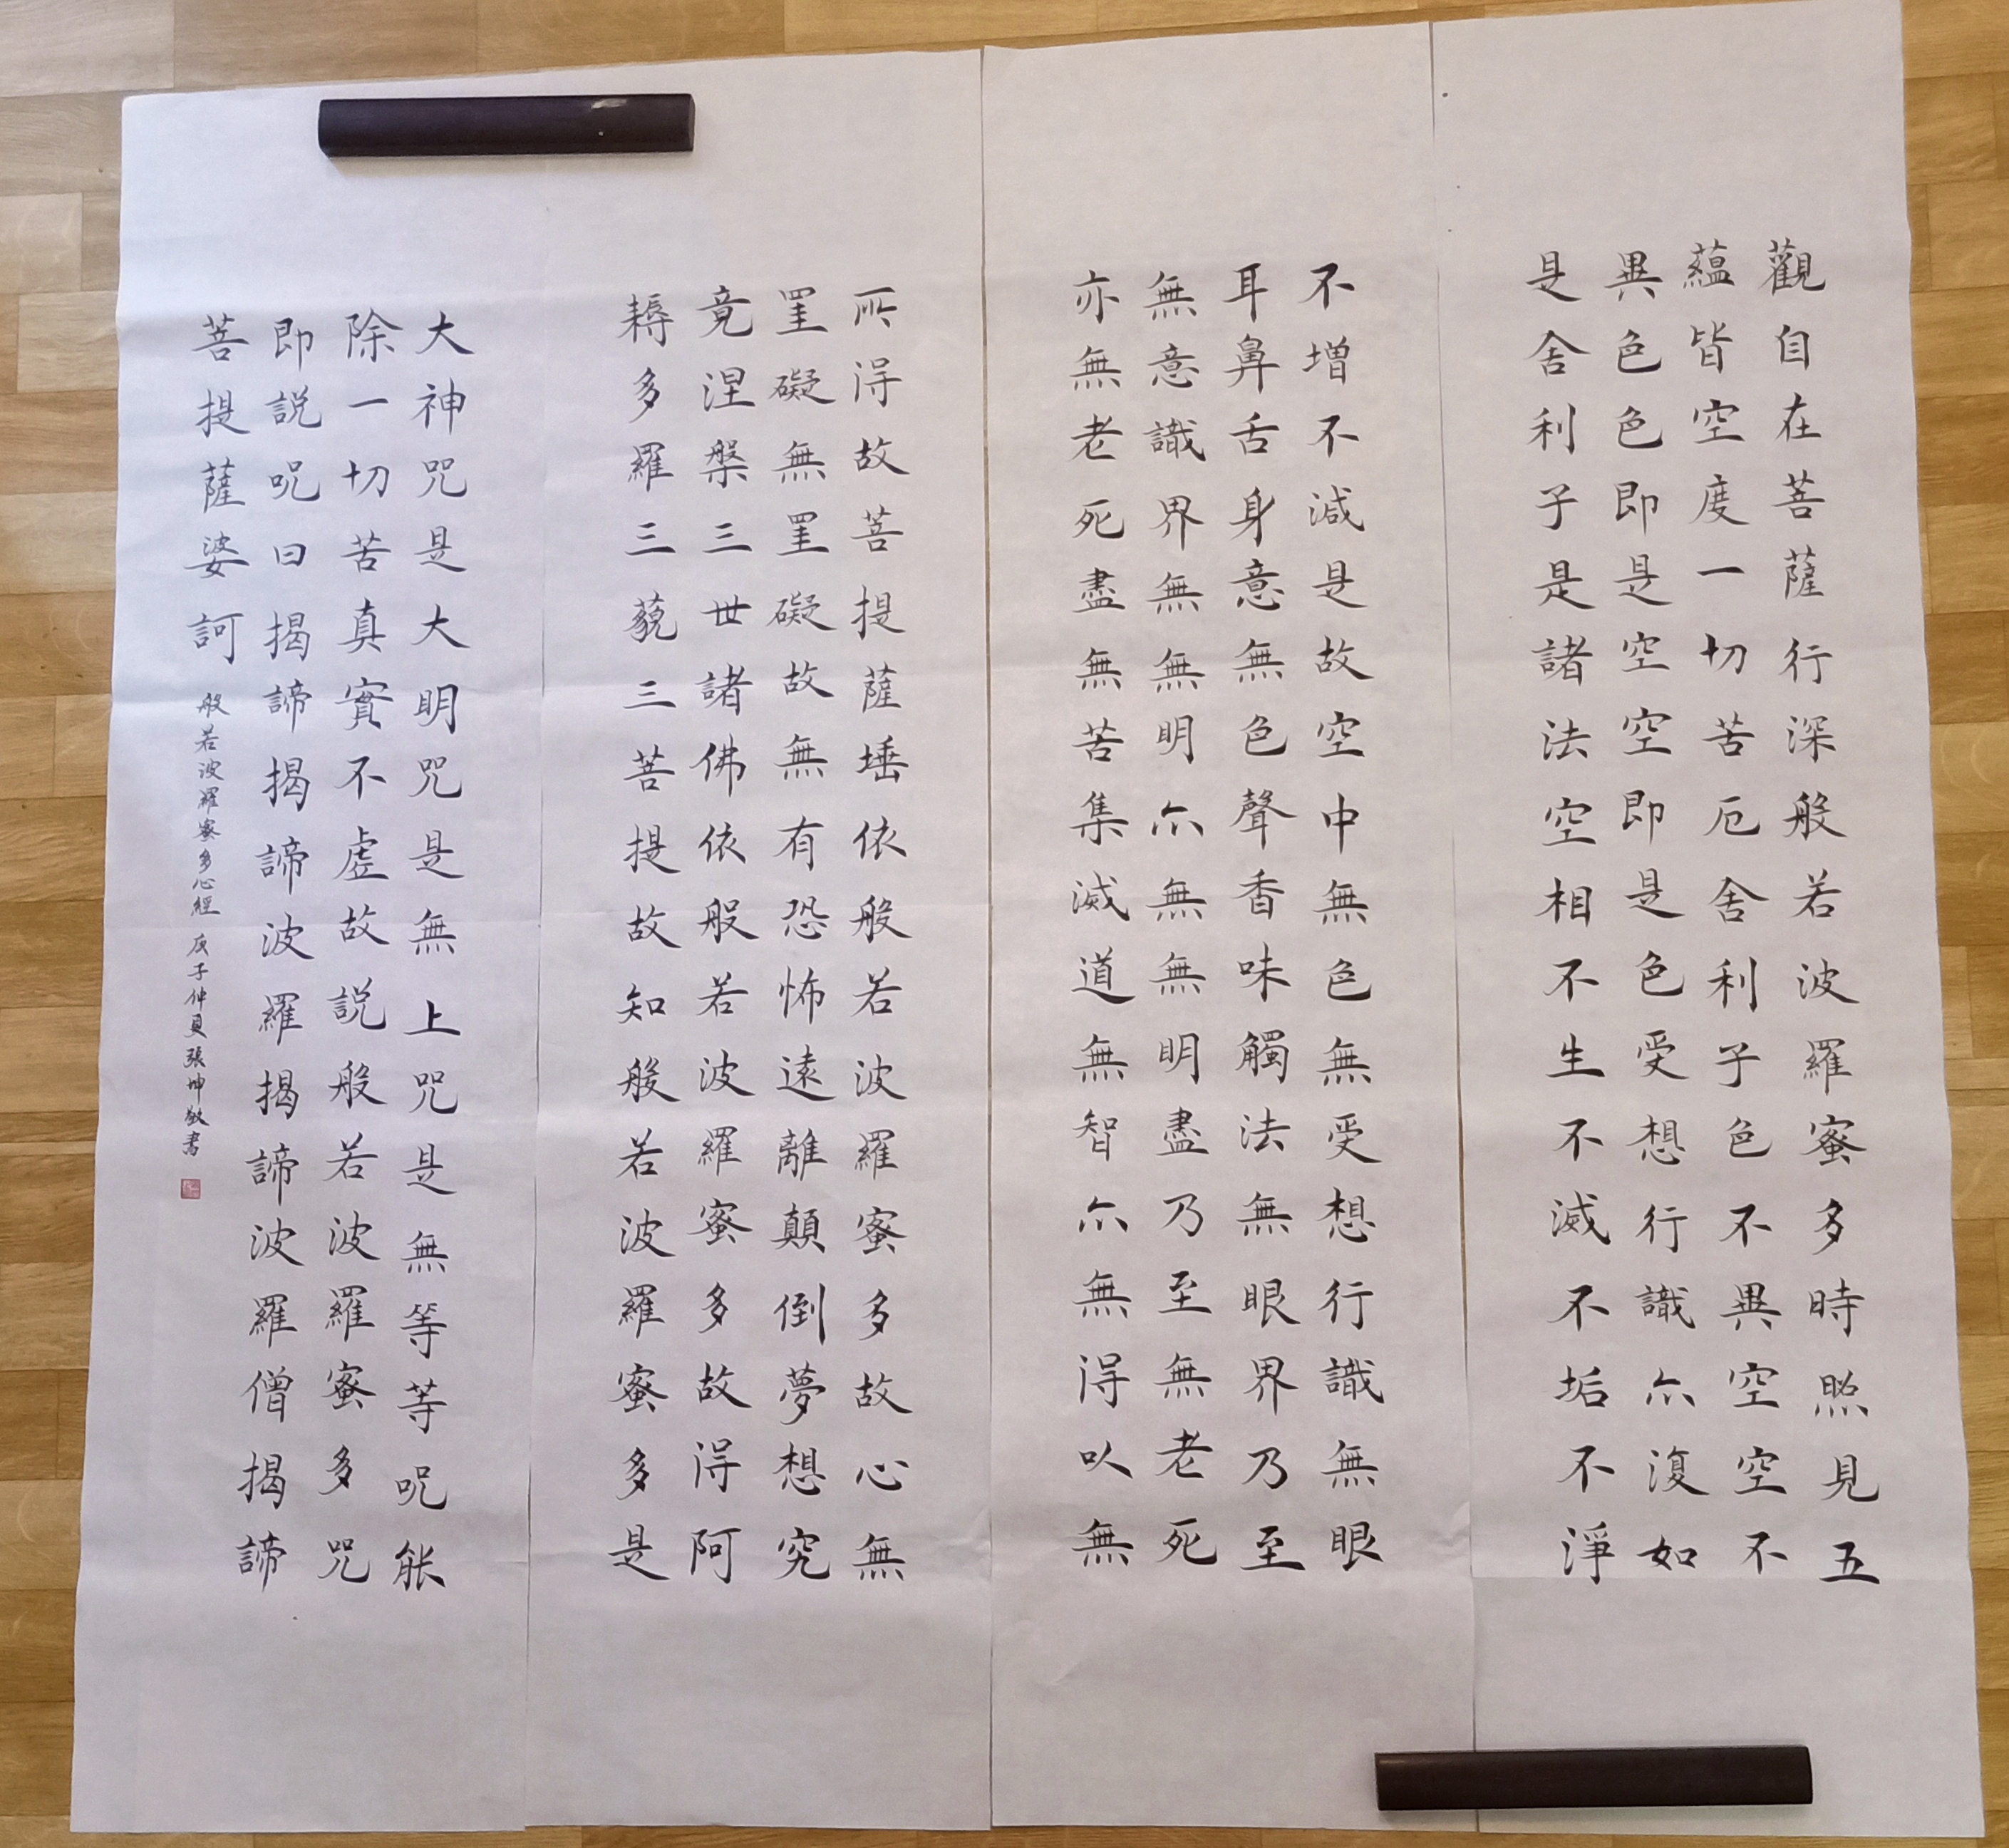 觀自在菩薩行深般若波羅蜜多時照見五
蘊皆空度一切苦厄舍利子色不異空空不
異色色即是空空即是色受想行識亦復如
是舍利子是諸法空相不生不滅不垢不淨
不增不減是故空中無色無受想行識無眼
耳鼻舌身意無色聲香味觸法無眼界乃至
無意識界無無明亦無無明盡乃至無老死
亦無老死盡無苦集滅道無智亦無得以無
所得故菩提薩埵依般若波羅蜜多故心無
罣礙無罣礙故無有恐怖遠離顛倒夢想究
竟涅槃三世諸佛依般若波羅蜜多故得阿
耨多羅三藐三菩提故知般若波羅蜜多是
大神咒是大明咒是無上咒是無等等呪能
除一切苦真實不虛故説般若波羅蜜多咒
即説呪曰揭諦揭諦波羅揭諦波羅僧揭諦
菩提薩婆訶
般若波羅蜜多心經 庚子仲夏張坤敏書